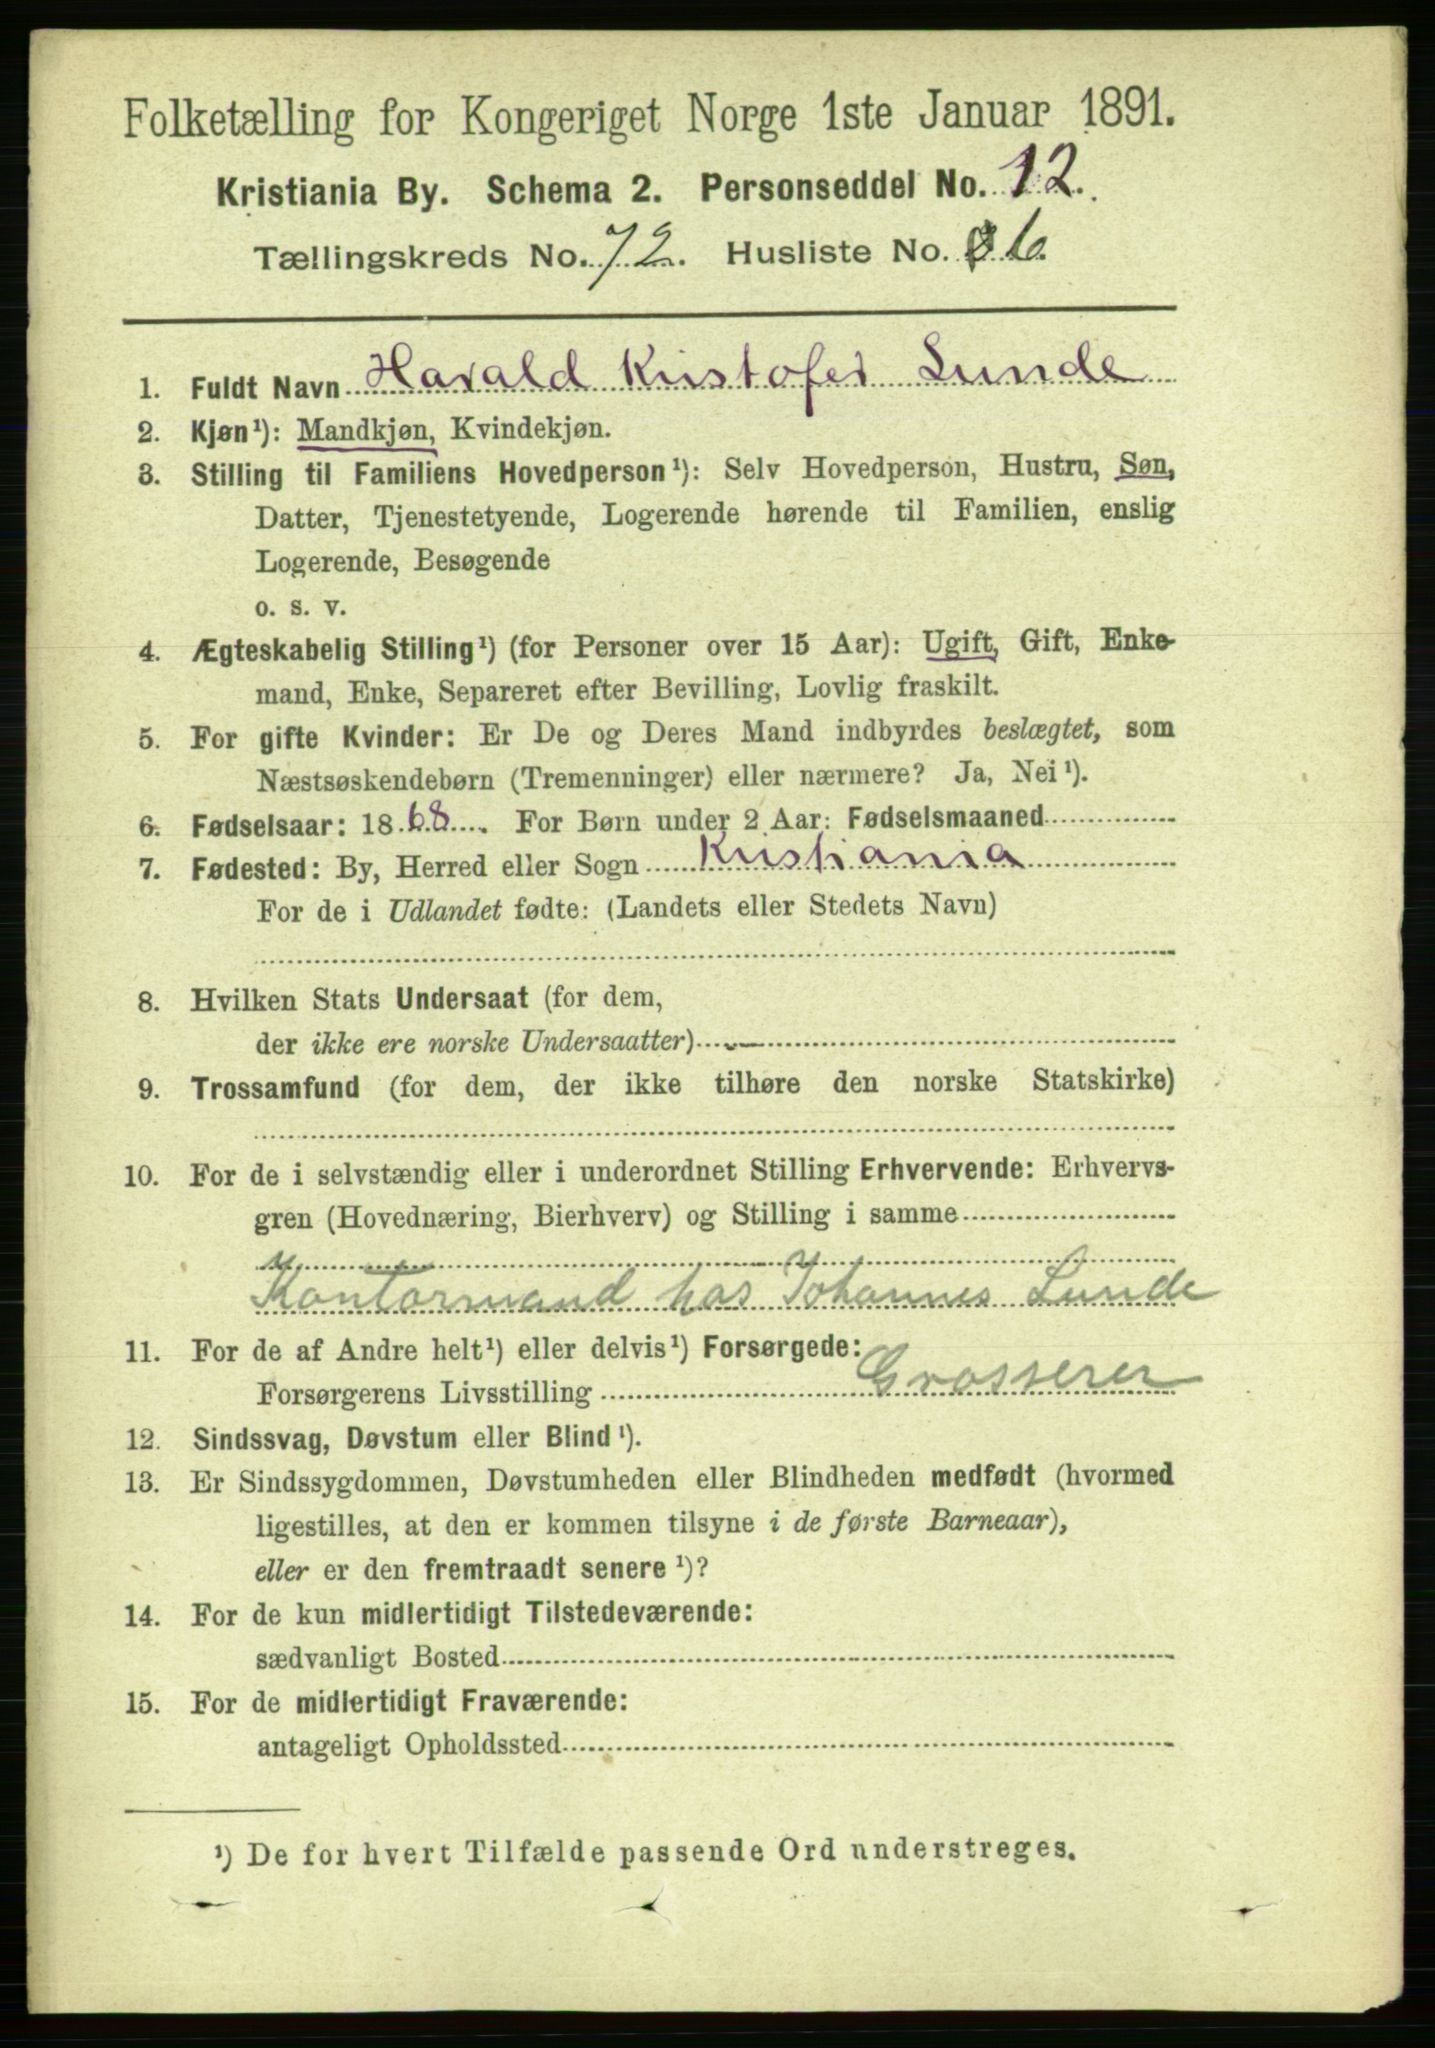 Folketælling for Kongeriget Norge 1ste Januar 1891.
Kristiania By. Schema 2. Personseddel No. 12.
Tællingskreds No. 72. Husliste No. 6.
1. Fuldt Navn Harald Kristofer Lunde
2. Kjøn¹): Mandkjøn, Kvindekjøn.
3. Stilling til Familiens Hovedperson¹): Selv Hovedperson, Hustru, Søn,
Datter, Tjenestetyende, Logerende hørende til Familien, enslig
Logerende, Besøgende
o. s. v.
4. Ægteskabelig Stilling¹) (for Personer over 15 Aar): Ugift, Gift, Enke-
mand, Enke, Separeret efter Bevilling, Lovlig fraskilt.
5. For gifte Kvinder: Er De og Deres Mand indbyrdes beslægtet, som
Næstsøskendebørn (Tremenninger) eller nærmere? Ja, Nei¹).
6. Fødselsaar: 1868. For Børn under 2 Aar: Fødselsmaaned
7. Fødested: By, Herred eller Sogn Kristiania
For de i Udlandet fødte: (Landets eller Stedets Navn)
8. Hvilken Stats Undersaat (for dem,
der ikke ere norske Undersaatter)
9. Trossamfund (for dem, der ikke tilhøre den norske Statskirke)
10. For de i selvstændig eller i underordnet Stilling Erhvervende: Erhvervs-
gren (Hovednæring, Bierhverv) og Stilling i samme
Kontormand hos Johannes Lunde
11. For de af Andre helt¹) eller delvis¹) Forsørgede:
Forsørgerens Livsstilling Grosserer
12. Sindssvag, Døvstum eller Blind¹).
13. Er Sindssygdommen, Døvstumheden eller Blindheden medfødt (hvormed
ligestilles, at den er kommen tilsyne i de første Barneaar),
eller er den fremtraadt senere¹)?
14. For de kun midlertidigt Tilstedeværende:
sædvanligt Bosted
15. For de midlertidigt Fraværende:
antageligt Opholdssted
¹) De for hvert Tilfælde passende Ord understreges.